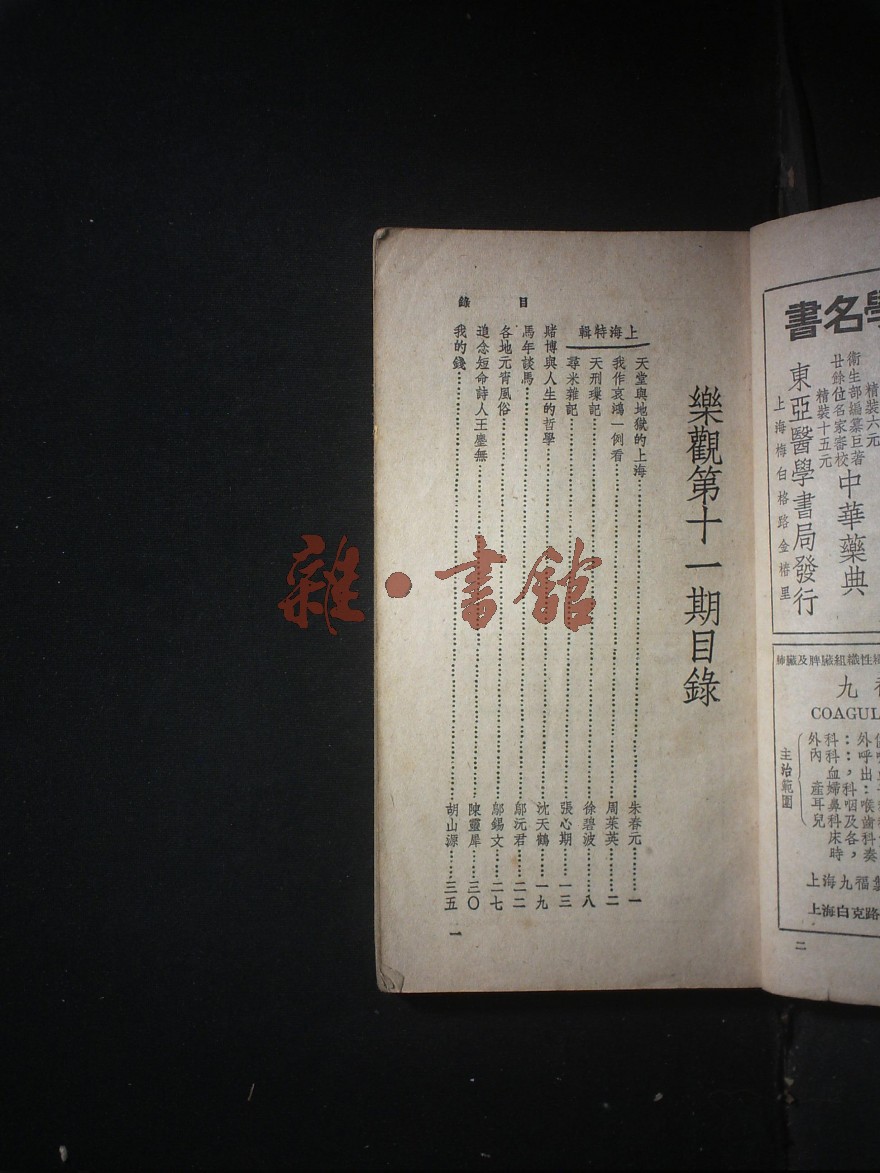 樂觀第十一期目錄
上海特輯
天堂與地獄的上海…………朱春元……一
我作哀鴻一例看…………周萊英……二
天刑璅記…………徐碧波……八
尋米雜記…………張心期……一三
賭博與人生的哲學…………沈天鶴……一九
馬年談馬…………鄔沅君……二二
各地元宵風俗…………鄔錫文……二七
追念短命詩人王塵無…………陳靈犀……三〇
我的錢…………胡山源……三五
目錄
一
學名書
精裝六元
衛生部編纂巨著
廿餘位名家審校
中華藥典
精裝十五元
東亞醫學書局發行
上海梅白格路金樁里
織性組織臟脾及臟肺
九
COAGUL
主治範圍
上海九福
上海白克路
二
雜·書館